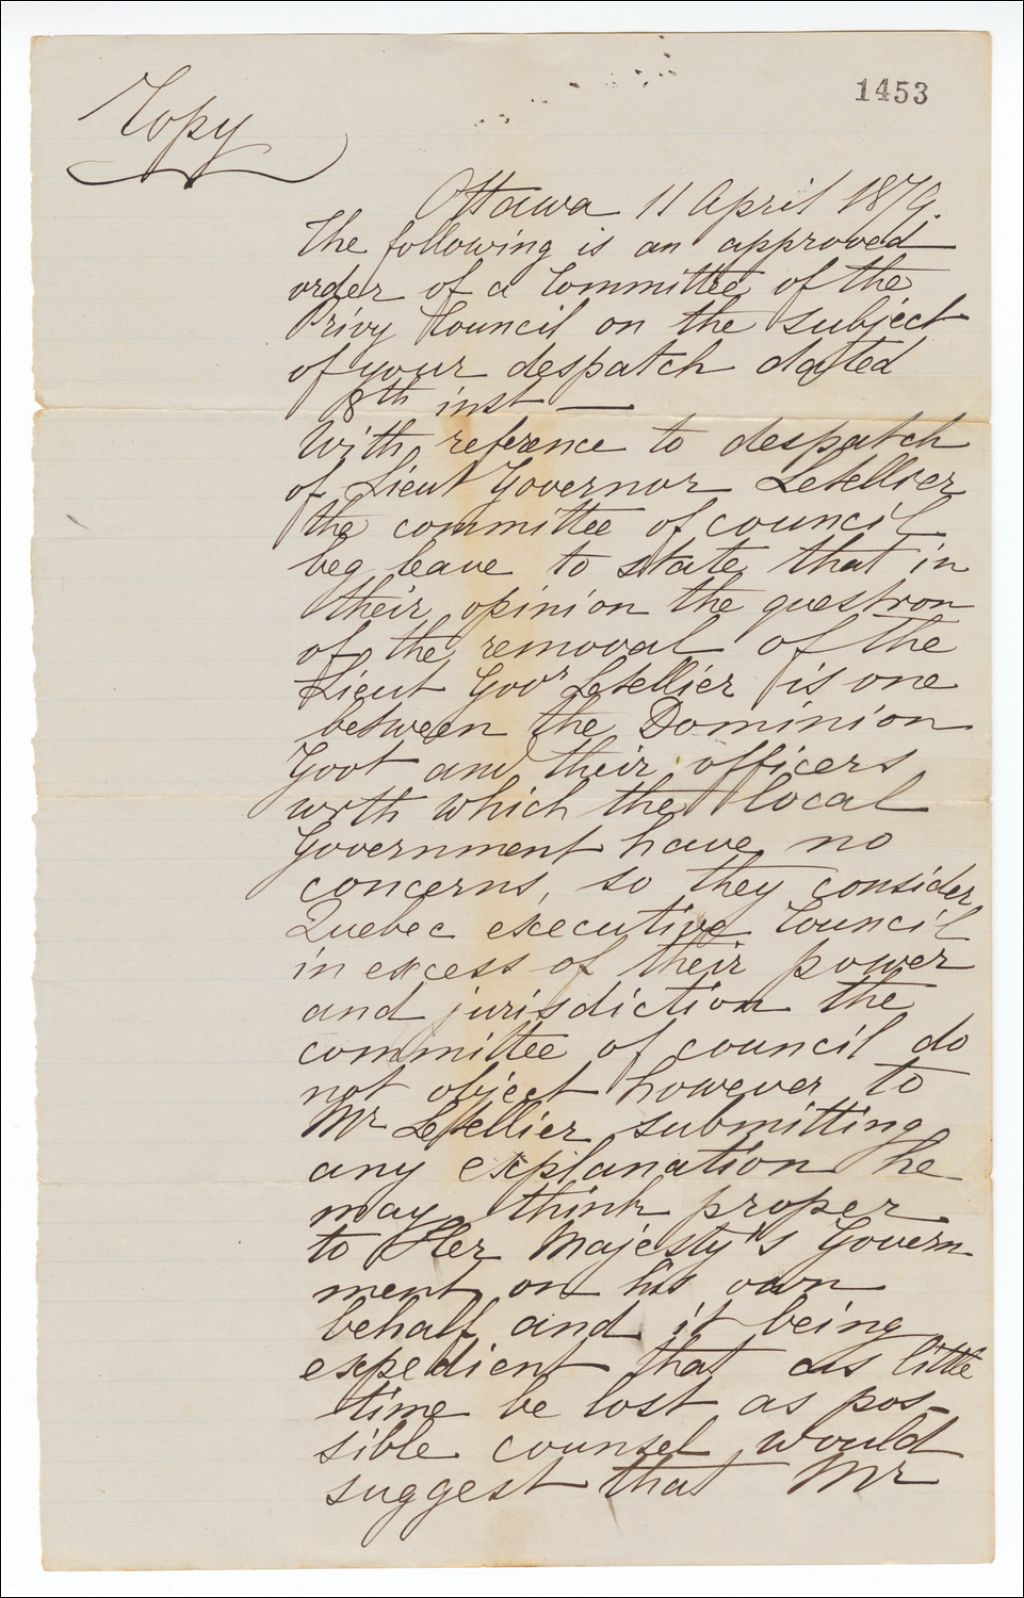 1453
Copy
Ottawa 11 April 1879.
The following is an approved
order of a Committee of the
Privy Council on the subject
of your despatch dated
8th inst —
With reference to despatch
of Lieut Governor Letellier
the committee of council
beg leave to state that in
their opinion the question
of the removal of the
Lieut Govr Letellier is one
between the Dominion
Govt and their officers
with which the local
Government have no
concerns, so they consider
Quebec executive Council
in excess of their power
and jurisdiction the
committee of council do
not object however to
Mr Letellier submitting
any explanation he
may think proper
to Her Majesty's Govern
ment on his own
behalf and it being
expedient that as little
time be lost as pos-
sible counsel would
suggest that Mr